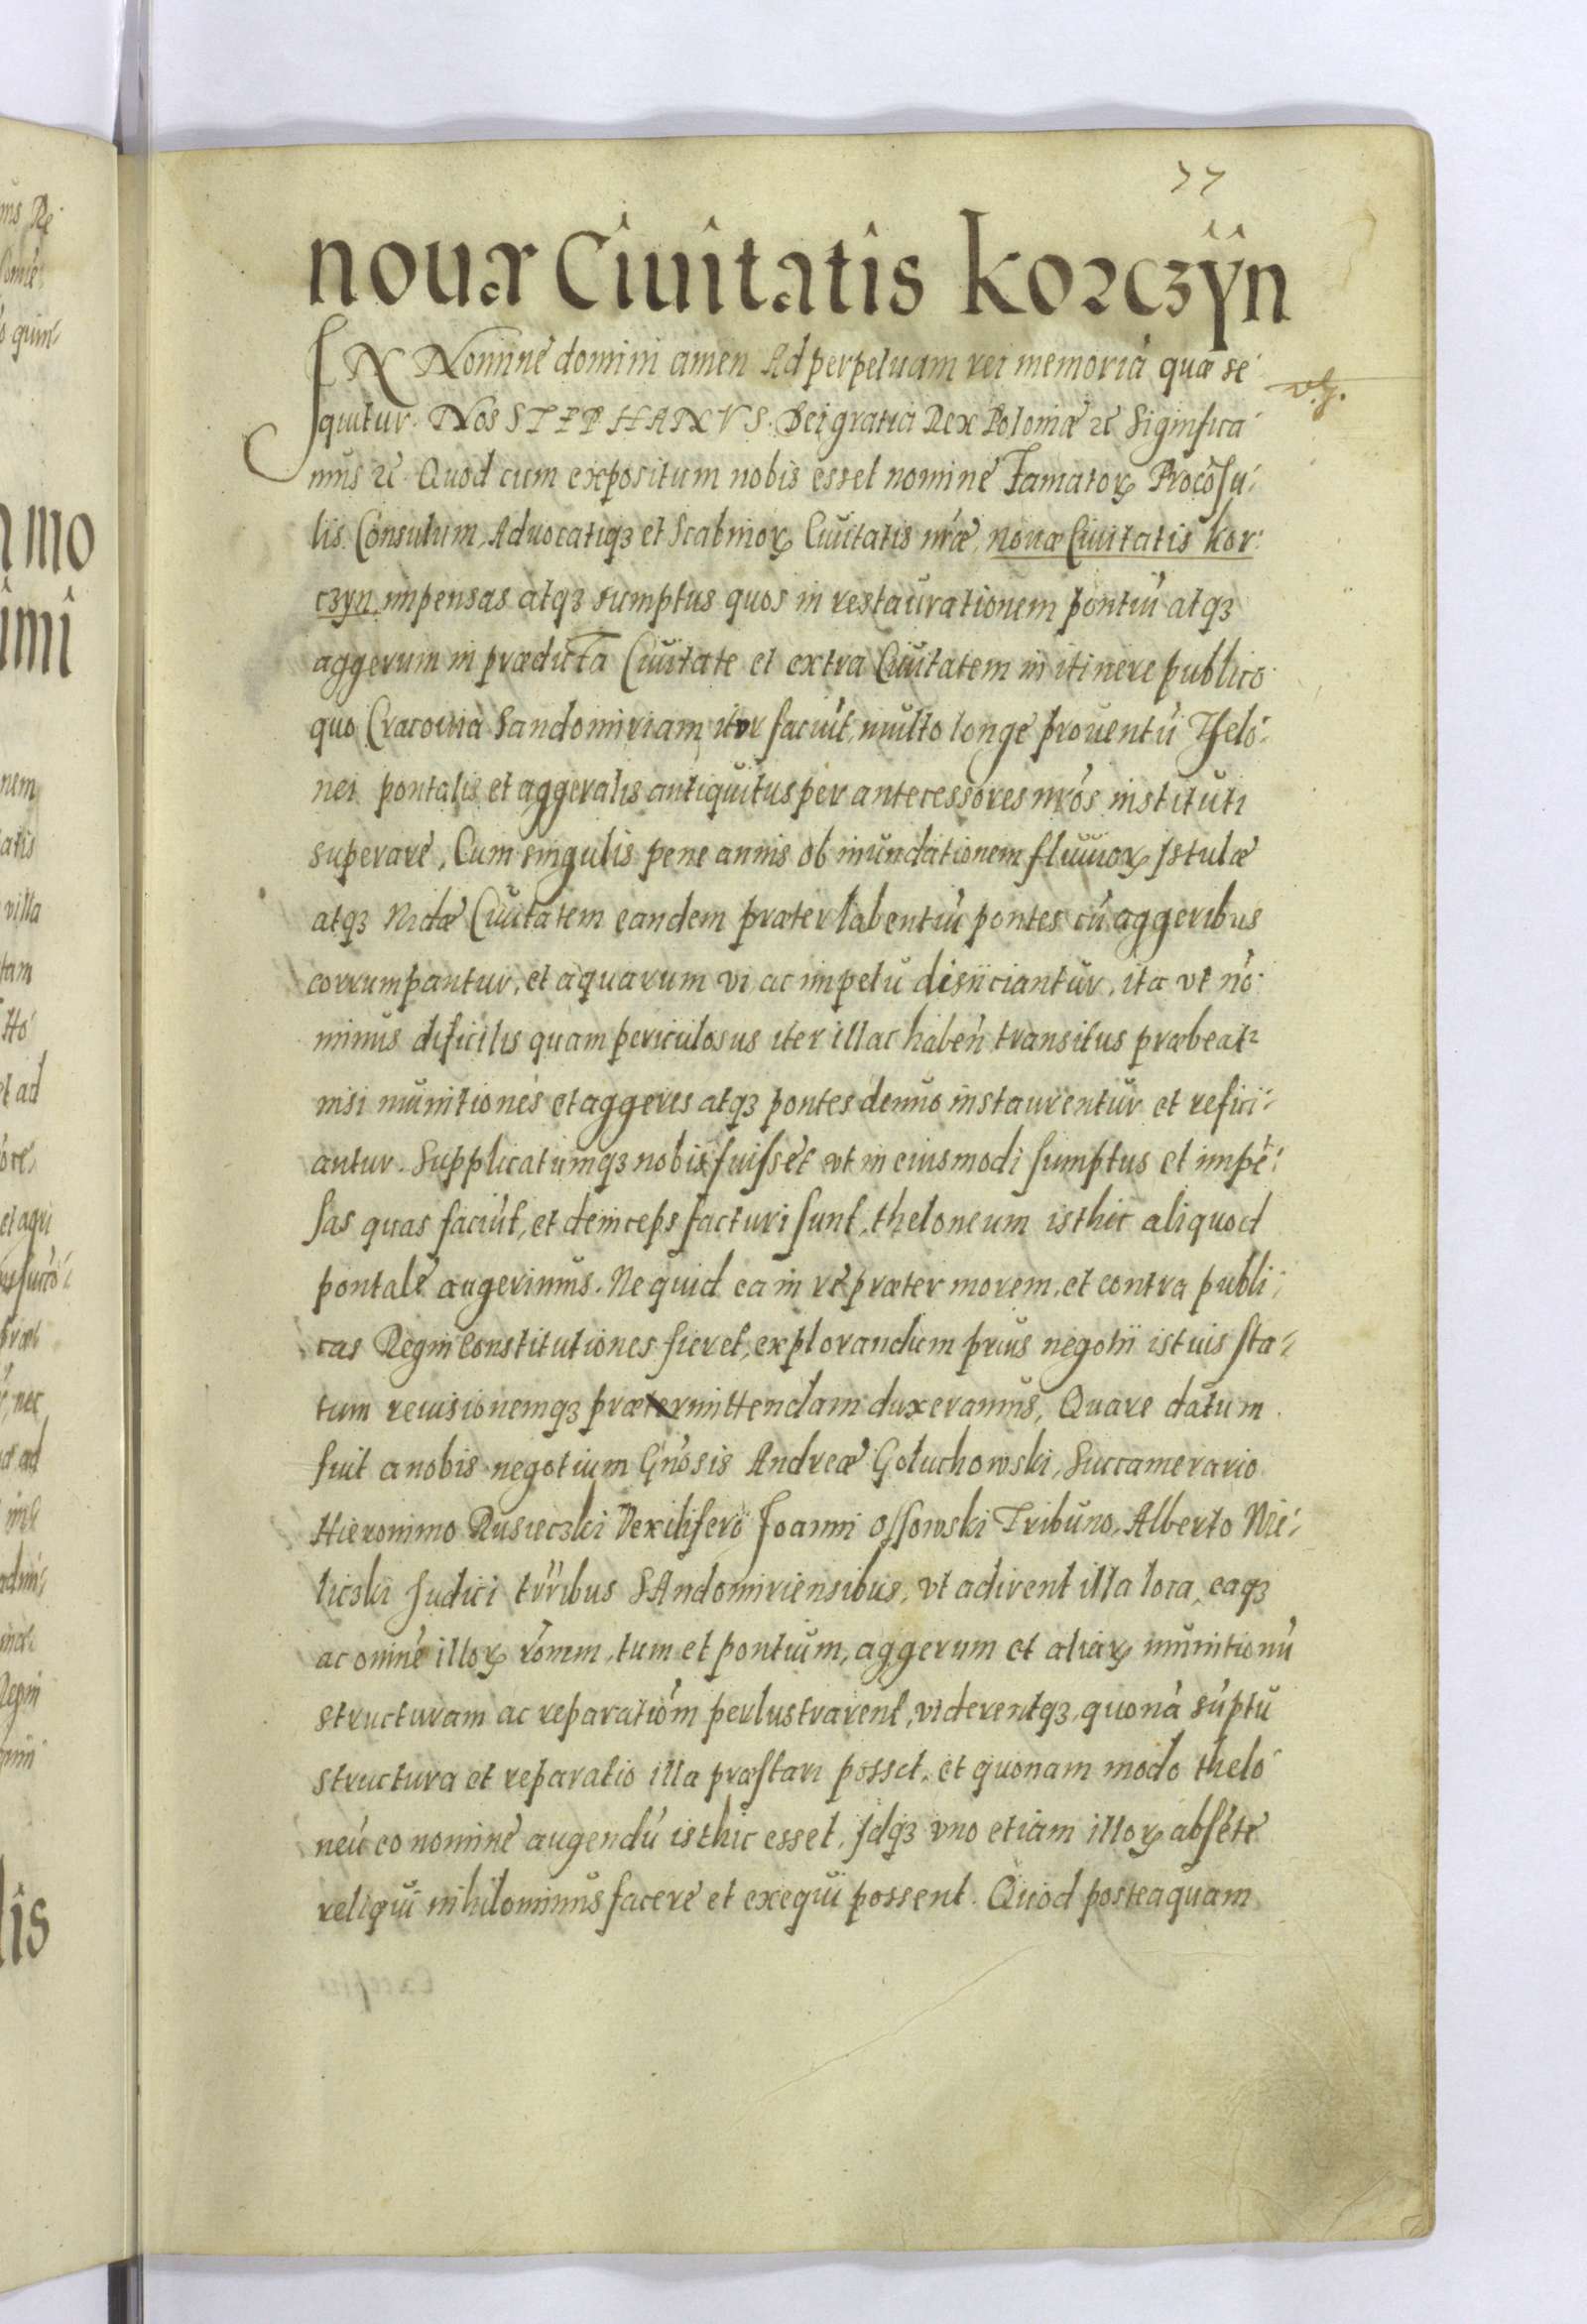 77
nouæ Ciuitatis korczÿn
IN Nomine domini amen Ad perpetuam rei memoriā quæ se⸗
quitur. Nos STEPHANVS. Dei gratia Rex Poloniæ ꝛc Significa⸗
mus ꝛc. Quod cum expositum nobis esset nomine Famatoꝝ Procōsu⸗
lis. Consulum, Aduocatiqꝫ et Scabinoꝝ Ciuitatis nr̄æ, nouæ Ciuitatis kor⸗
czyn impensas atqꝫ sumptus quos in restaurationem pontiū atqꝫ
aggerum in prædicta Ciuitate et extra Ciuitatem in itinere publico
quo Cracouiā Sandomiriam iter faciūt, multo longe prouentū Thelo⸗
nei pontalis et aggeralis antiquitus per antecessores nr̄os instituti
superare, Cum singulis pene annis ob inundationem fluuioꝝ Istulæ
atqꝫ Nidæ Ciuitatem eandem præterlabentiū pontes cū aggeribus
corrumpantur, et aquarum vi ac impetu disiiciantur, ita vt nō
minus dificilis quam periculosus iter illac habeñ transitus præbeatꝛ
nisi munitiones et aggeres atqꝫ pontes denuo instaurentur et refici⸗
antur. Supplicatumqꝫ nobis fuisset vt in eiusmodi sumptus et impē⸗
sas quas faciūt, et deinceps facturi sunt, theloneum isthic aliquod
pontale augerimus. Ne quid ea in re præter morem, et contra publi⸗
cas Regni Constitutiones fieret, explorandum prius negotii istius sta⸗
tum reuisionemqꝫ prætermittendam duxeramus, Quare datum
fuit a nobis negotium Gn̄osis Andreæ Gołuchowski, Succamerario
Hieronimo Rusieczki Vexilifero Joanni Ossowski Tribuno, Alberto Mie⸗
liczki Judici tr̄ribus SAndomiriensibus, vt adirent illa loca, eaqꝫ
ac omne illoꝝ rōnm, tum et pontium, aggerum et aliaꝝ munitionū
structuram ac reparatiōm perlustrarent, viderentqꝫ, quonā sūptu
structura et reparatio illa præstari posset, et quonam modo thelo⸗
neū eo nomine augendū isthic esset, Idqꝫ vno etiam illoꝝ absēte
reliqui nihilominus facere et exequi possent. Quod posteaquam